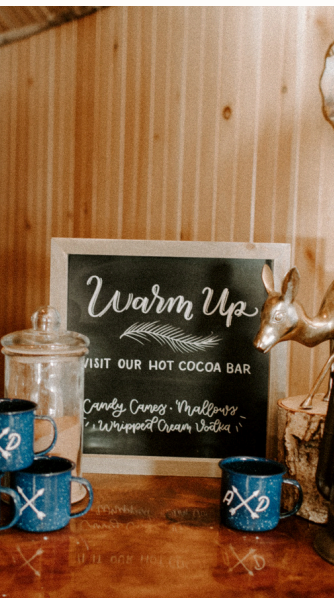 Warm Up
VISIT OUR HOT COCOA BAR
Candy Canes · Mallows
Whipped Cream Vodka
D
A X D